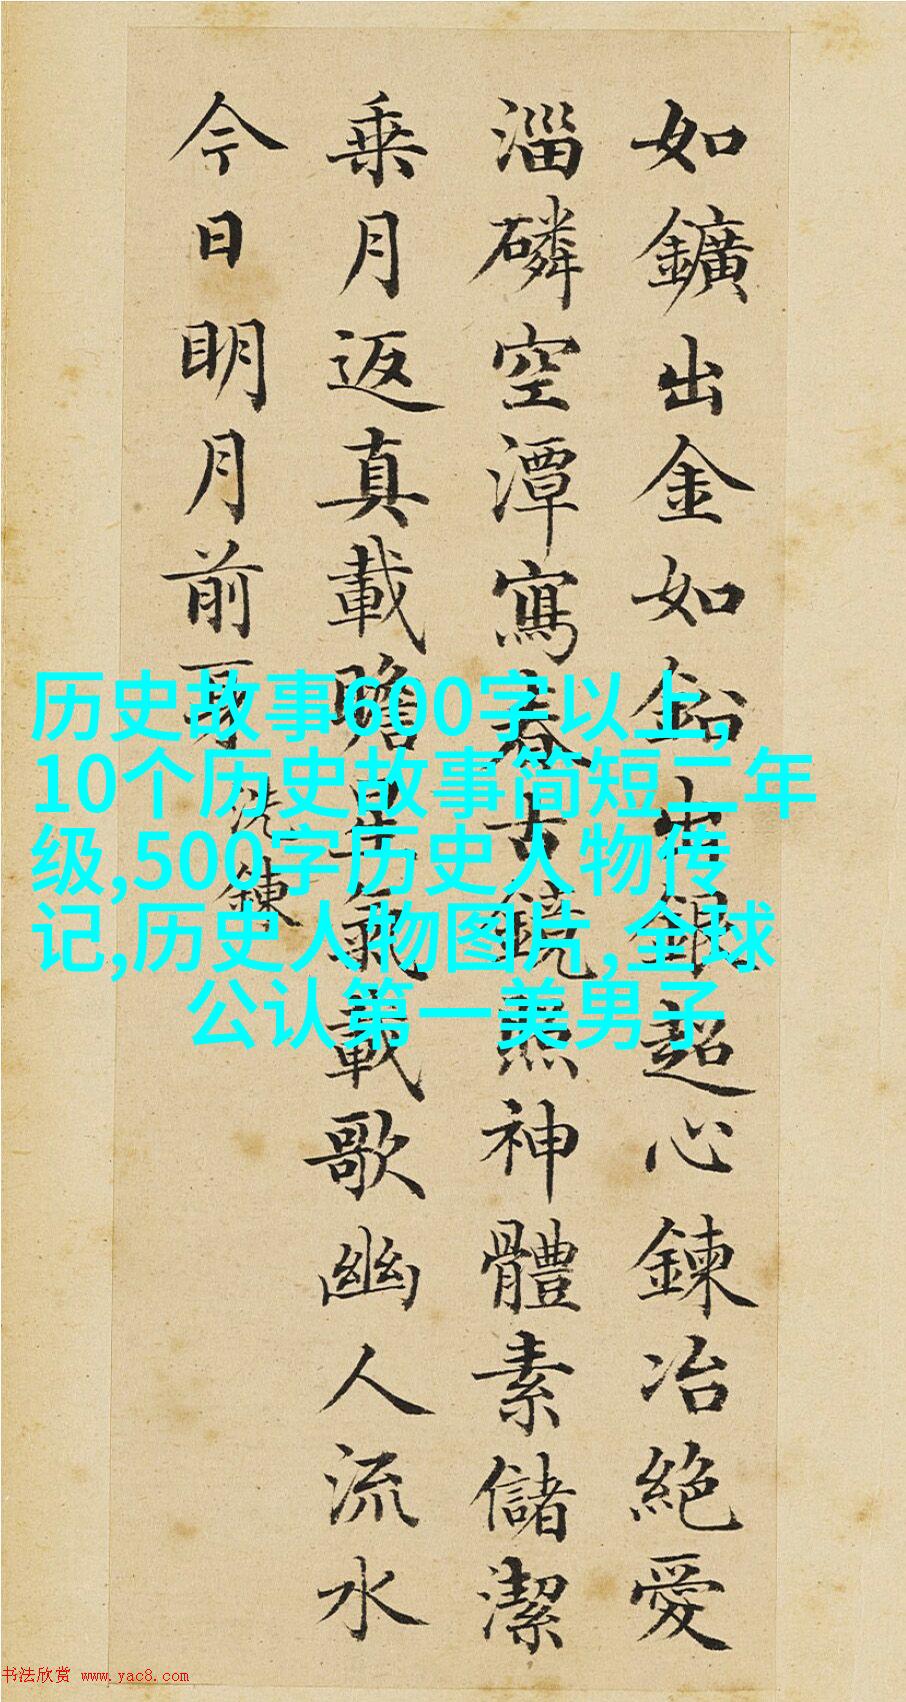 如鑛出金如鉛出銀超心鍊冶絕愛
淄磷空潭寫春古鏡照神體素儲潔
乗月返真載瞻星氣載歌幽人流水
今日明月前身
洗鍊
历史故事600字以上,
10个历史故事简短二年
级,500字历史人物传
记,历史人物图片,全球
公认第一美男子
书法欣赏 www.yac8.com